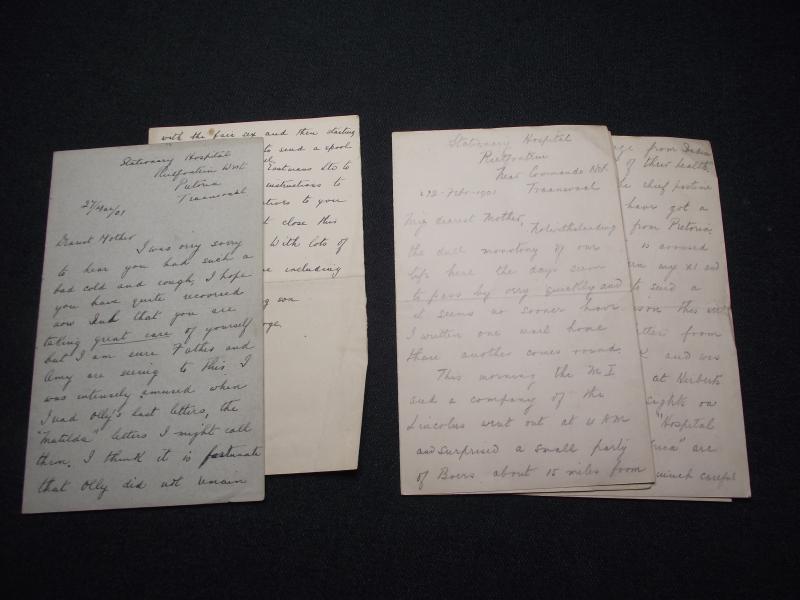 Stationary Hospital
Rietfontein West
Pretoria
Transvaal
27/Mar/01
Dearest Mother
I was very sorry
to hear you had such a
bad cold and cough, I hope
you have quite recovered
now and that you are
taking great care of yourself
but I am sure Father and
Amy are seeing to this. I
was intensely amused when
I read Olly's last letters, the
"Matilda" letters I might call
them. I think it is fortunate
that Olly did not remain
with the fair sex and then starting
to send a spool
Eastmans Ltd to
instructions to
to your
close this
With lots of
including
son
Stationary Hospital
Rietfontein
Near Commando Nek
Transvaal
22-Feb-1901
My dearest Mother,
Notwithstanding
the dull monotony of our
life here the days seem
to pass by very quickly and
it seems no sooner have
I written one mail home
than another comes round.
This morning the M.I.
and a company of the
Lincolns went out at 4 AM
and surprised a small party
of Boers about 15 miles from
from
of their health,
chief pastime
have got a
from Pretoria
is aroused
my XI and
to send a
this
letter from
and was
at Herberts
sights on
"Hospital
are
much careful